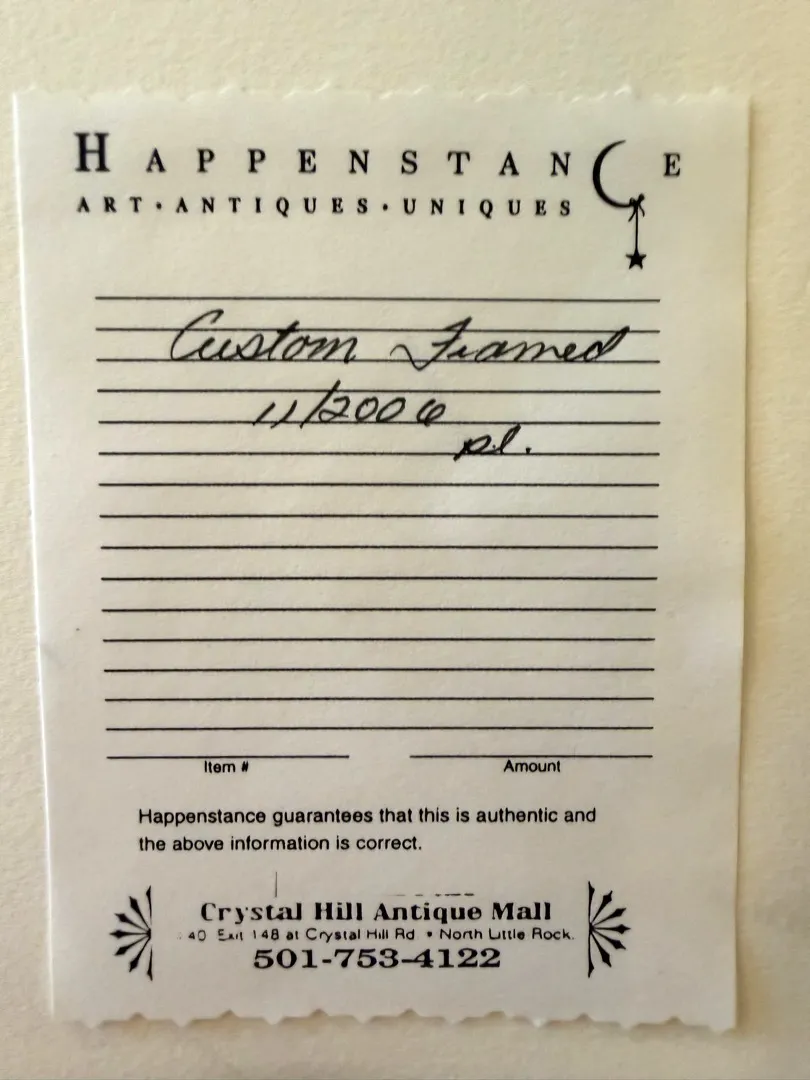 HAPPENSTANCE
ART • ANTIQUES • UNIQUES
Custom Framed
11/2006
pl.
Item # Amount
Happenstance guarantees that this is authentic and
the above information is correct.
Crystal Hill Antique Mall
40 Exit 148 at Crystal Hill Rd • North Little Rock.
501-753-4122